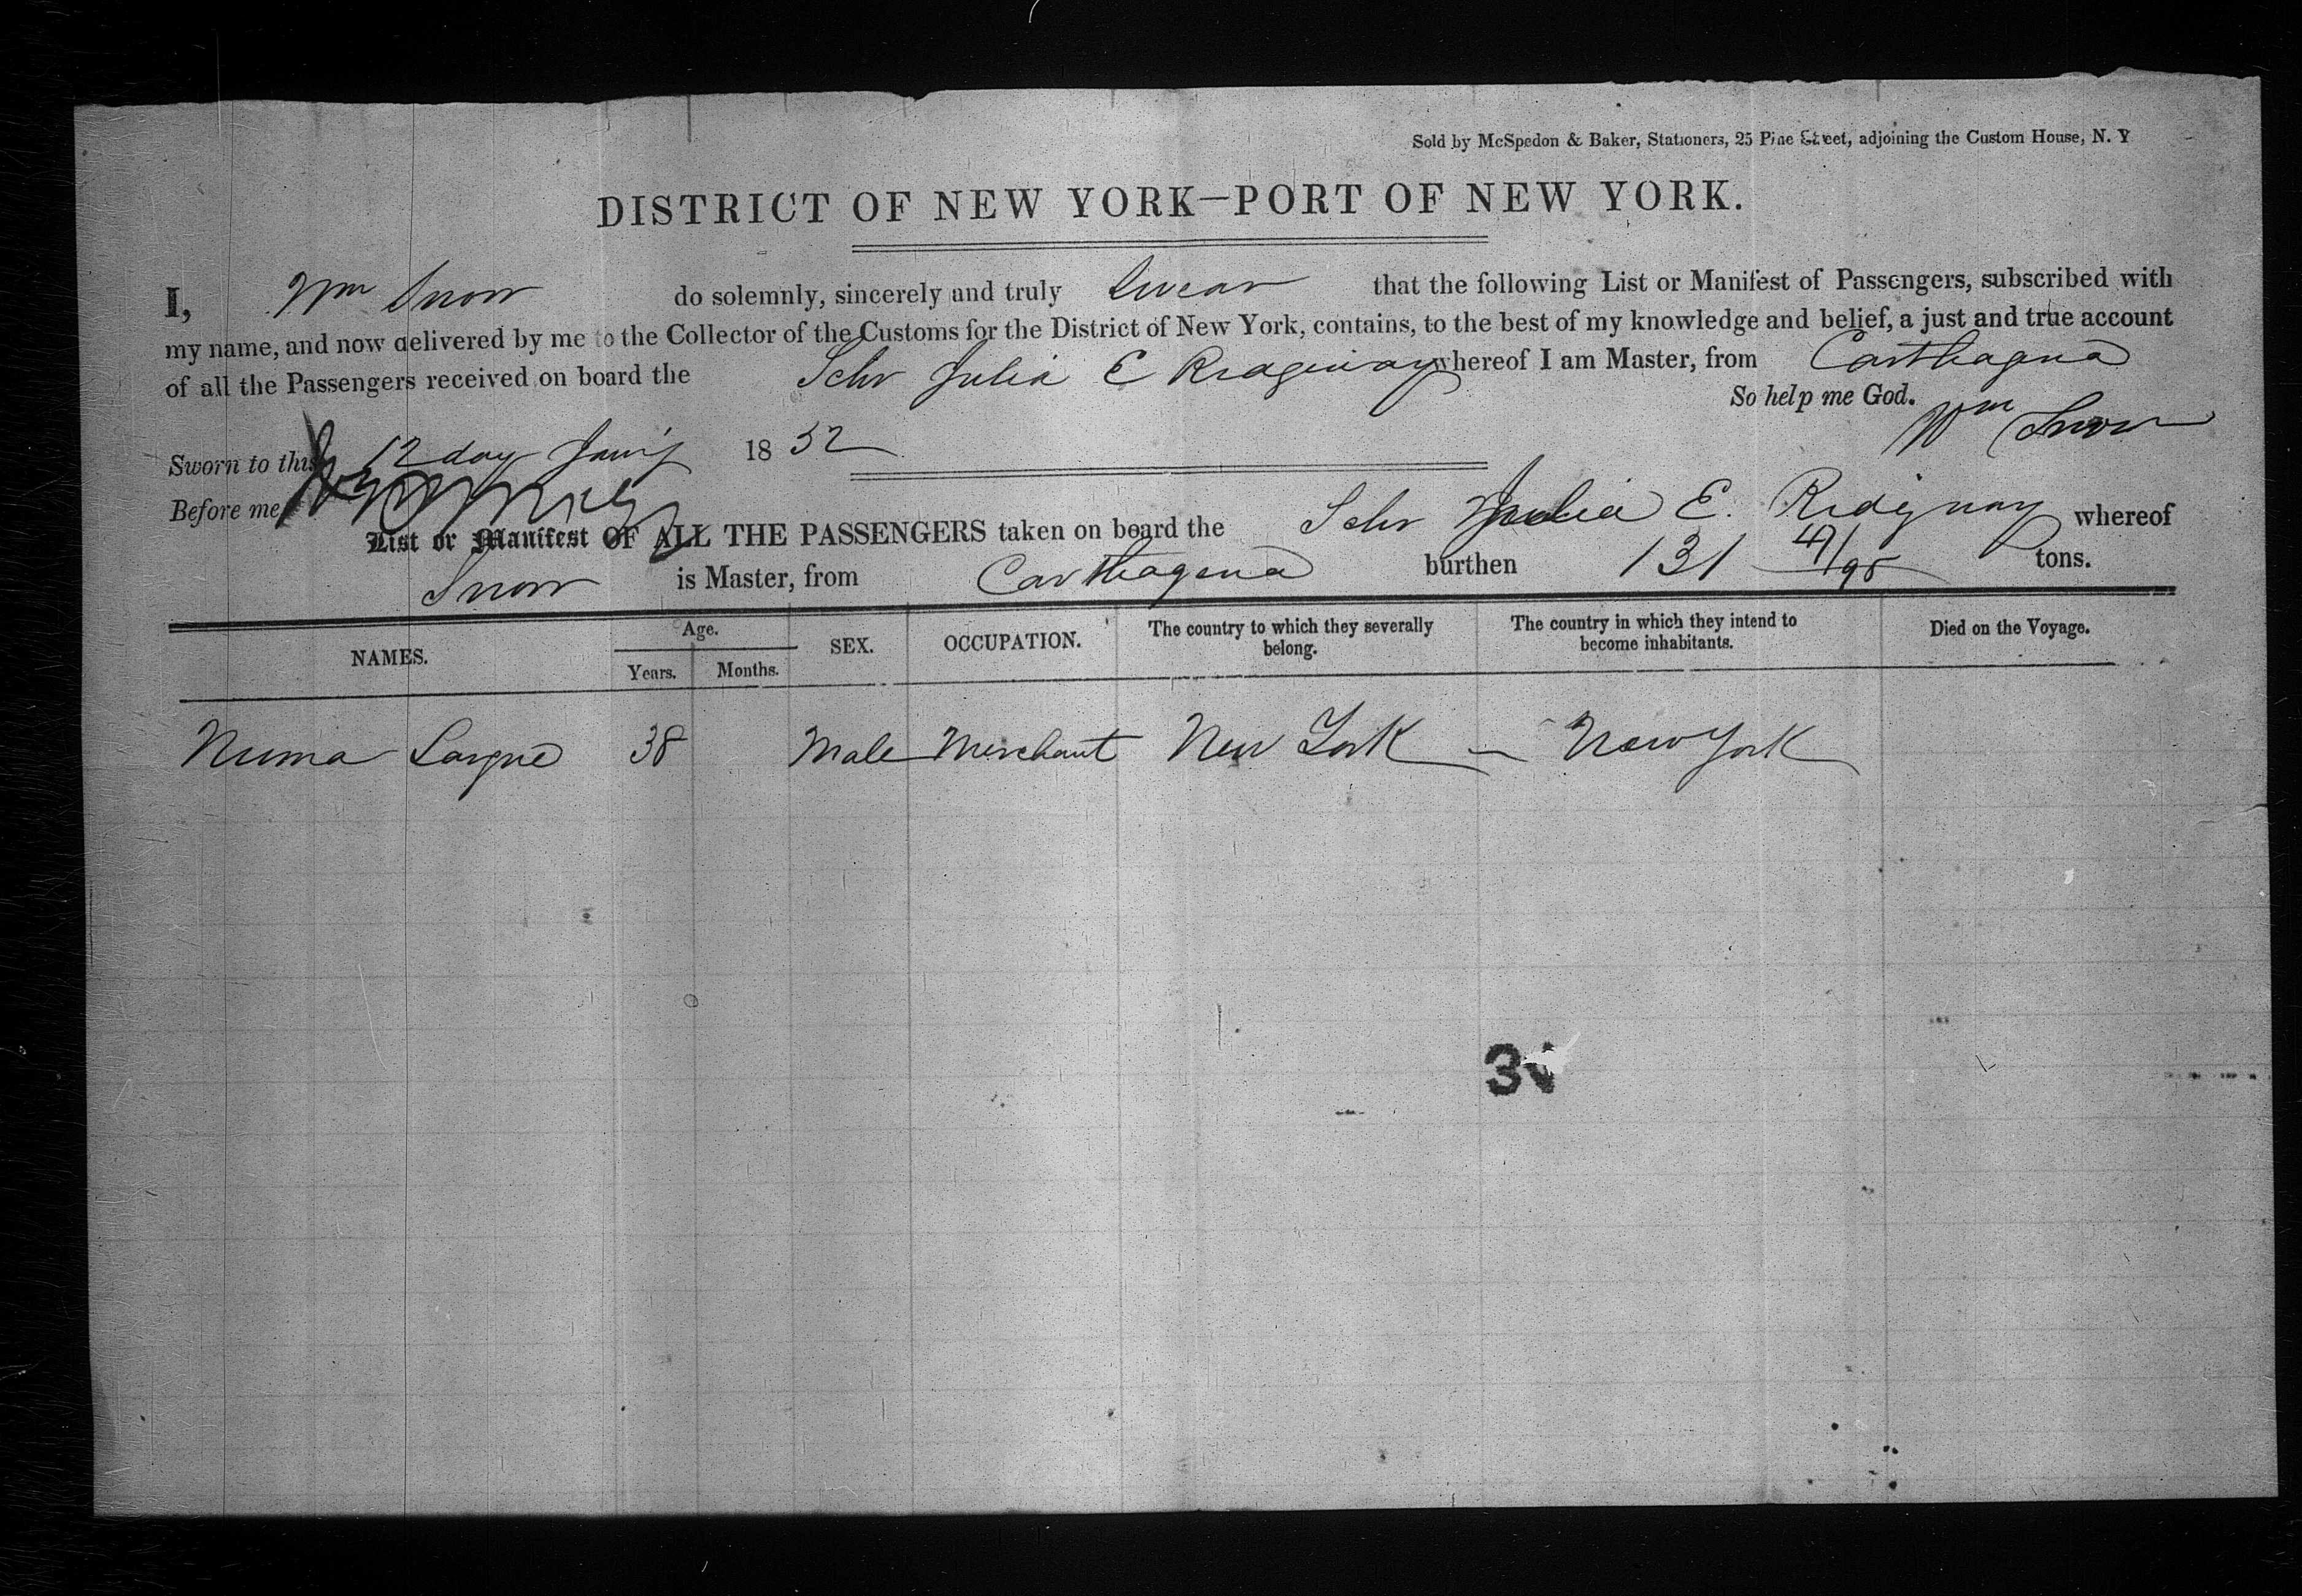 Sold by McSpedon & Baker, Stationers, 25 Pine Street, adjoining the Custom House, N. Y
DISTRICT OF NEW YORK—PORT OF NEW YORK.
I, Wm Snow do solemnly, sincerely and truly Swear that the following List or Manifest of Passengers, subscribed with
my name, and now delivered by me to the Collector of the Customs for the District of New York, contains, to the best of my knowledge and belief, a just and true account
of all the Passengers received on board the Schr Julia E Ridgeway whereof I am Master, from Carthagena
So help me God.
Wm Snow
Sworn to this 12 day Jany 1852
Before me
List or Manifest OF ALL THE PASSENGERS taken on board the Schr Julia E. Ridgway whereof
Snow is Master, from Carthagena burthen 131 41/95 tons.
NAMES. Age. Years. Months. SEX. OCCUPATION. The country to which they severally belong. The country in which they intend to become inhabitants. Died on the Voyage.
Numa 38 Male Merchant New York — New York